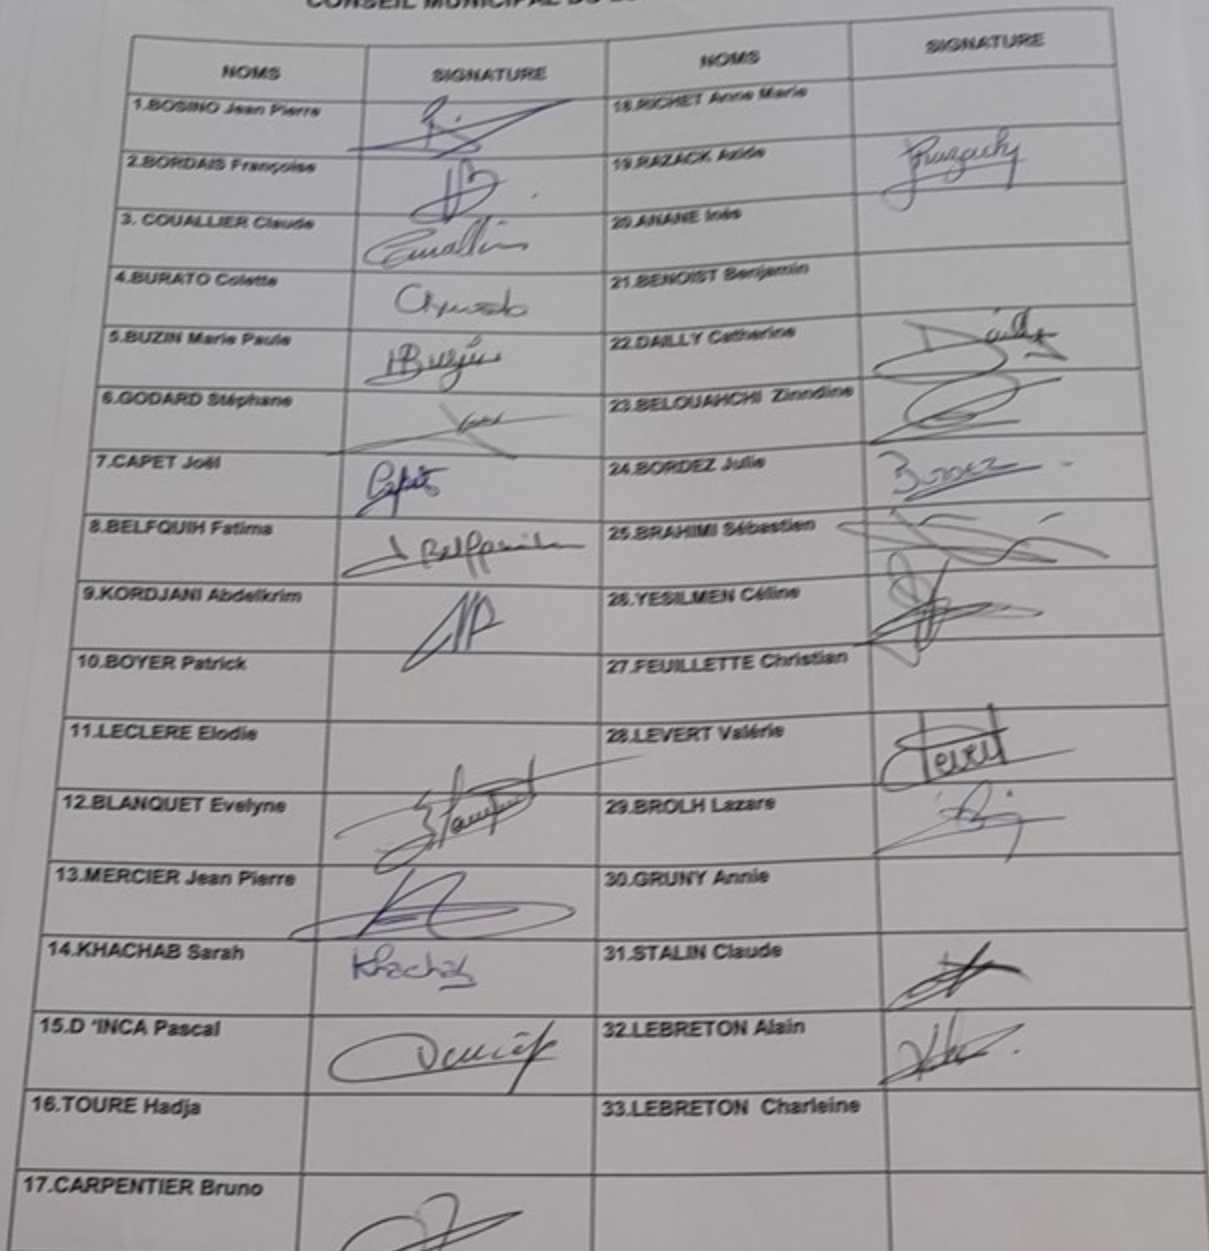 CONSEIL MUNICIPAL DU
NOMS SIGNATURE NOMS SIGNATURE
1.BOSINO Jean Pierre 18.RICHET Anne Marie
2.BORDAIS Françoise 19.RAZACK Azide
3. COUALLIER Claude 20.ANANE Inès
4.BURATO Colette 21.BENOIST Benjamin
5.BUZIN Marie Paule 22.DAILLY Catherine Dailly
6.GODARD Stéphane 23.BELOUAHCHI Zinndine
7.CAPET Joël Capet 24.BORDEZ Julie
8.BELFQUIH Fatima 25.BRAHIMI Sébastien
9.KORDJANI Abdelkrim 26.YESILMEN Céline
10.BOYER Patrick 27.FEUILLETTE Christian
11.LECLERE Elodie 28.LEVERT Valérie
12.BLANQUET Evelyne 29.BROLH Lazare
13.MERCIER Jean Pierre 30.GRUNY Annie
14.KHACHAB Sarah Khachab 31.STALIN Claude
15.D 'INCA Pascal 32.LEBRETON Alain
16.TOURE Hadja 33.LEBRETON Charleine
17.CARPENTIER Bruno